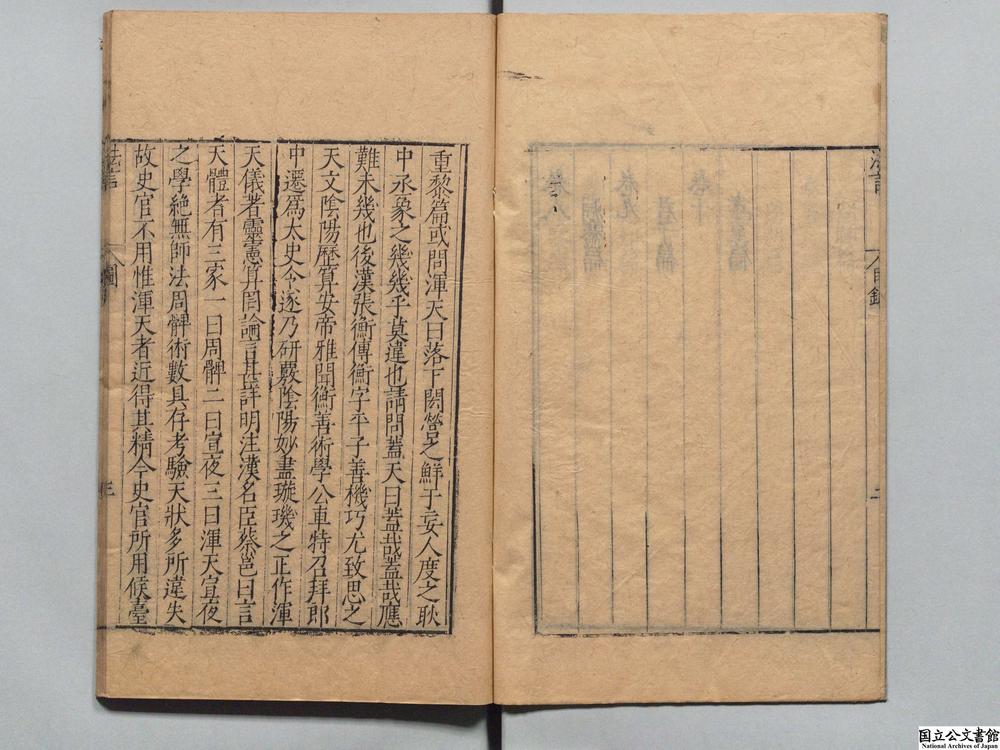 法言
目錄
二
重黎篇或問渾天曰落下閎營之鮮于妄人度之耿
中丞象之幾幾乎莫違也請問蓋天曰蓋哉蓋哉應
難未幾也後漢張衡傳衡字平子善機巧尤致思之
天文陰陽歷算安帝雅聞衡善術學公車特召拜郎
中遷爲大史令遂乃研覈陰陽妙盡璇璣之正作渾
天儀著靈憲算罔論言甚詳明注漢名臣蔡邕曰言
天體者有三家一曰周髀二曰宣夜三曰渾天宣夜
之學絶無師法周髀術數具存考驗天狀多所違失
故史官不用惟渾天者近得其精今史官所用候臺
法言
圖
三
国立公文書館
National Archives of Japan